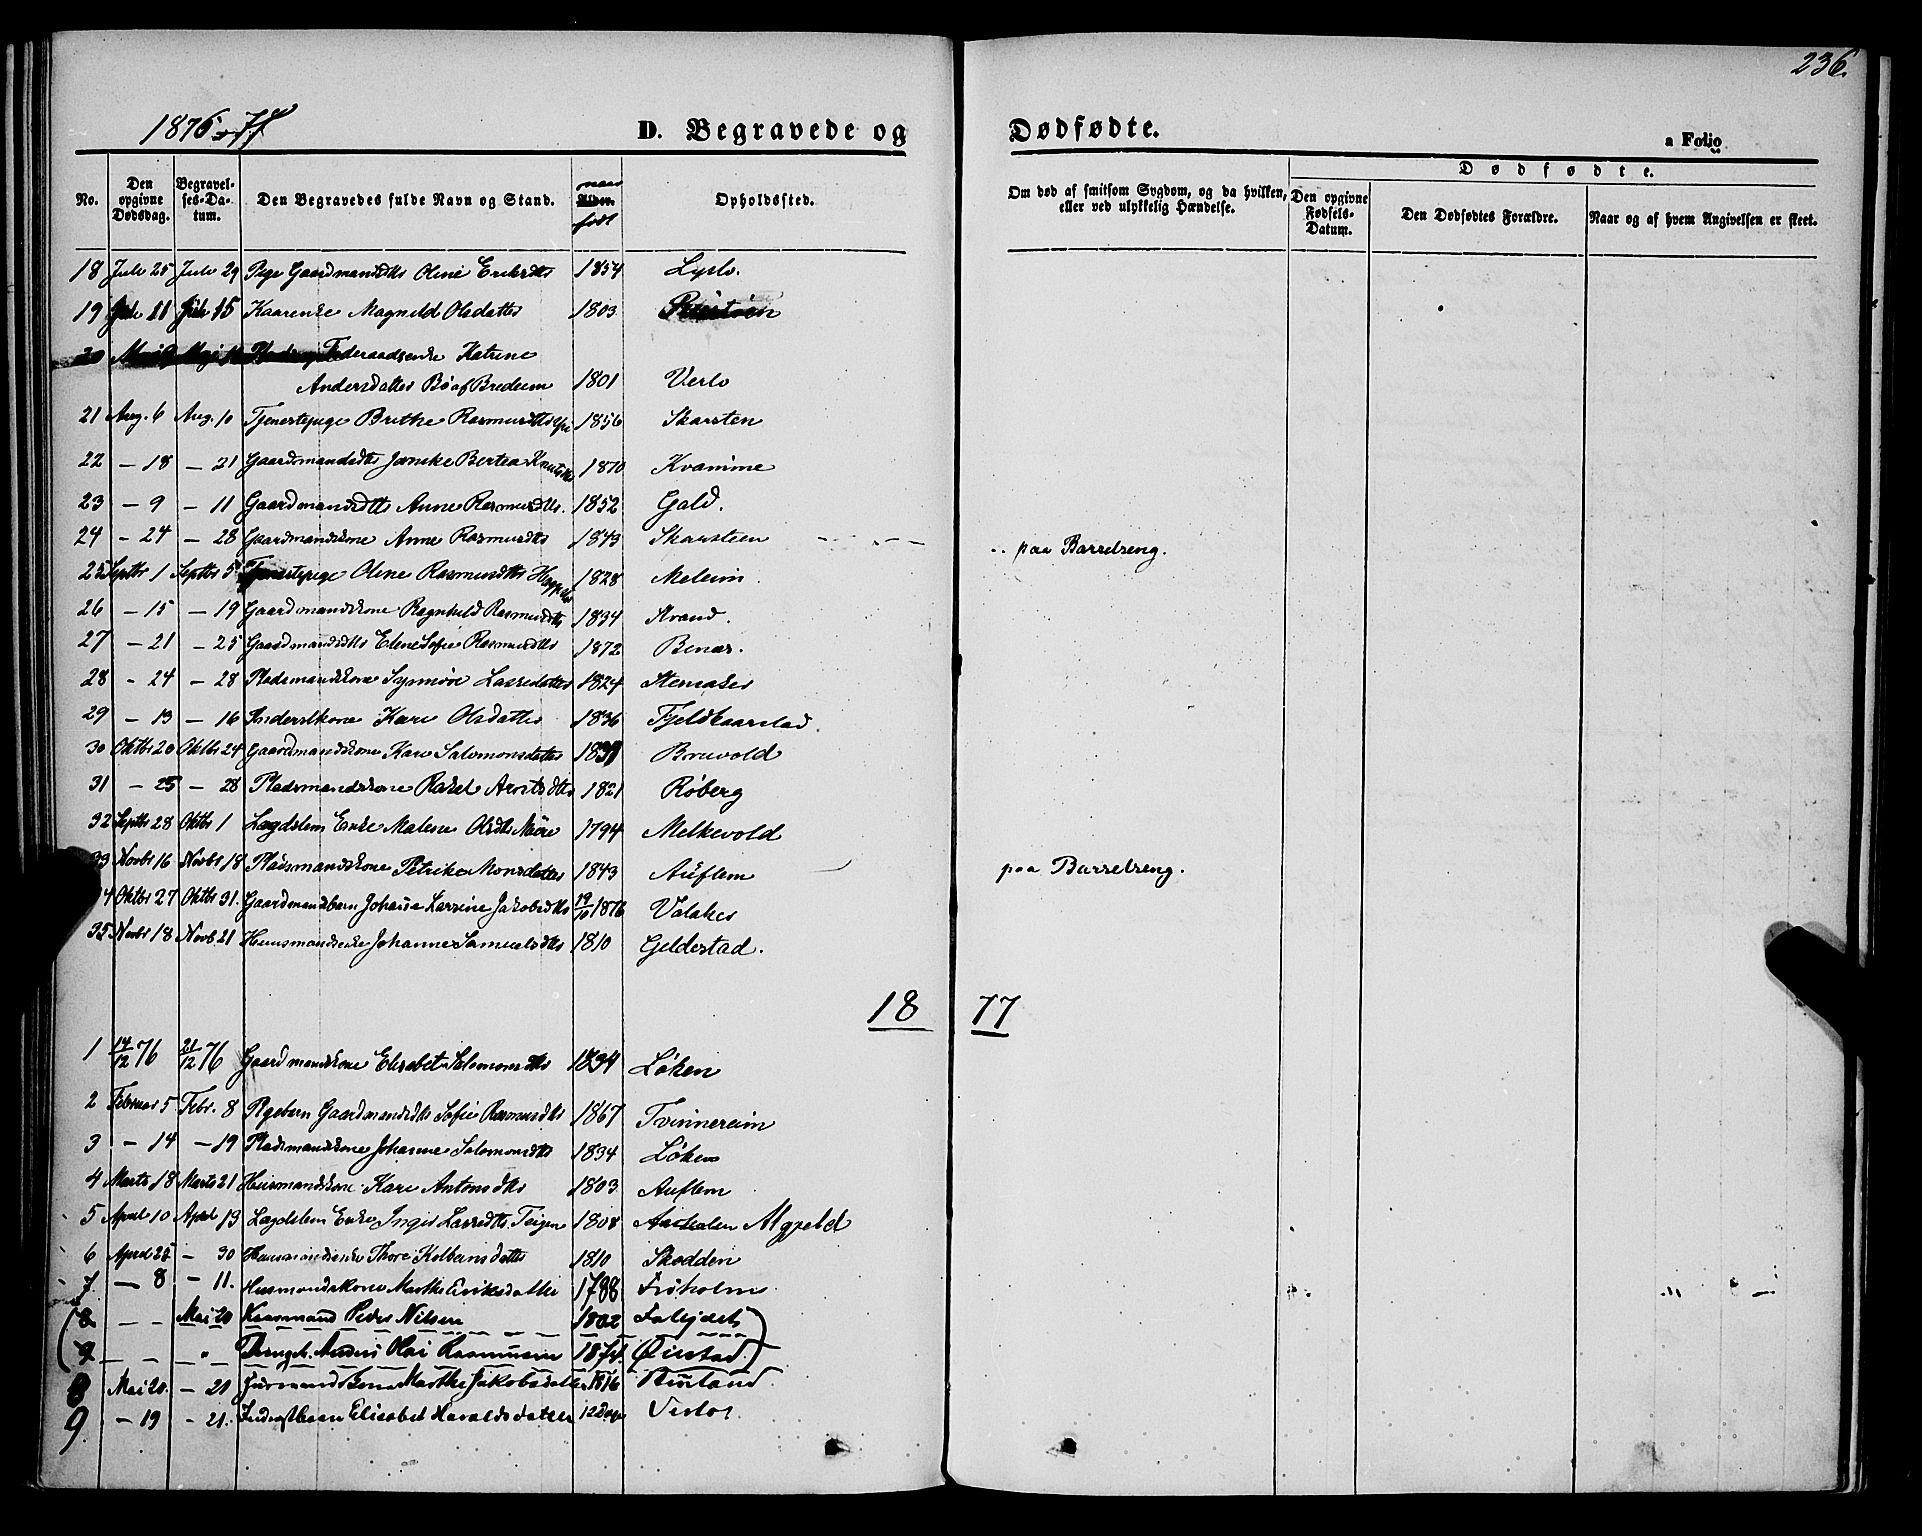 236.
1876-77
D. Begravede og Dødfødte.
a Folio
No.
Den opgivne Dødsdag.
Begravelses-Datum.
Den Begravedes fulde Navn og Stand.
naar Alder. født
Opholdssted.
Om død af smitsom Sygdom, og da hvilken, eller ved ulykkelig Hændelse.
Dødfødte.
Den opgivne Fødsels-Datum.
Den Dødfødtes Forældre.
Naar og af hvem Angivelsen er skeet.
18 Juli 25 Juli 29 Pige Gaardmandsdtr Oline Eriksdtr 1854 Lyslo.
19 11 15 Kaarenke Magnild Olsdatter 1803
20 Mai Mai Føderaadsenke Katrine
Andersdatter Bø af Bredeim 1801 Verlo
21 Aug. 6 Aug. 10 Tjenestepige Brithe Rasmusdtr 1856 Skarsten
22 - 18 - 21 Gaardmandsdtr Jenske Bertea Knutsdtr 1870 Kvamme
23 - 9 - 11 Gaardmandsdtr Anne Rasmusdtr. 1852 Gald.
24 - 24 - 28 Gaardmandskone Anne Rasmusdtr 1843 Skarsteen - - - paa Barselseng.
25 Septbr 1 Septbr 5 Tjenestepige Oline Rasmusdtr 1828 Meleim.
26 - 15 - 19 Gaardmandskone Ragnhild Rasmusdtr 1834 Strand.
27 - 21 - 25 Gaardmandsdtr Elene Sofie Rasmusdtr 1872 Benar.
28 - 24 - 28 Pladsmandskone Synnøve Lassedatter 1824
29 - 13 - 16 Inderstkone Kari Olsdatter 1836 Fjeldkaarstad.
30 Oktbr 20 Oktbr 24 Gaardmandskone Kari Salomonsdatter Bruvold
31 - 25 - 28 Pladsmandskone Rakel Arntsdtr 1821 Røberg
32 Septbr 28 Oktbr 1 Lægdslem Enke Malene Olsdtr Møre 1794 Melkevold
33 Novbr 16 Novbr 18 Pladsmandskone Petrike Monsdatter 1843 Auflem paa Barselseng.
34 Oktbr 27 Oktbr 31. Gaardmandsbarn Johanne Larsine Jakobsdtr 19/10 1876 Valaker
35 Novbr 18 Novb. 21 Huusmandsenke Johanne Samuelsdtr 1810 Geldestad.
1877
1 14/12 76 21/12 76 Gaardmandskone Elisabet Salomonsdtr 1834 Løken
2 Februar 5 Febr. 8 Pigebarn Gaardmandsdtr Sofie Rasmusdtr 1867 Tvinnereim
3 - 14 - 19 Pladsmandskone Johanne Salomonsdtr 1834 Løken
4 Marts 18 Marts 21 Huusmandskone Kari Antonsdtr 1803 Auflem
5 April 10 April 13 Lægdslem Enke Inger Lassedtr. Teigen 1808 Aarholen Algjeld
6 April 25 - 30 Huusmandsenke Thore Kolbeinsdatter 1810 Skodden
7. - 8 - 11. Husmandskone Marthe Eriksdatter 1788 Frøholm
(8 - - Mai 20 Kaarmand Peder Nilsen 1802
(9 - - " Drengeb. Anders Olai Rasmussen 1874. Øvrstad.)
8 Mai 20. - 21 Marthe Jakobsdatter 1816
9. - 19 - 21. Inderstbarn Elisabet Haraldsdatter 12 Dage Verlo.